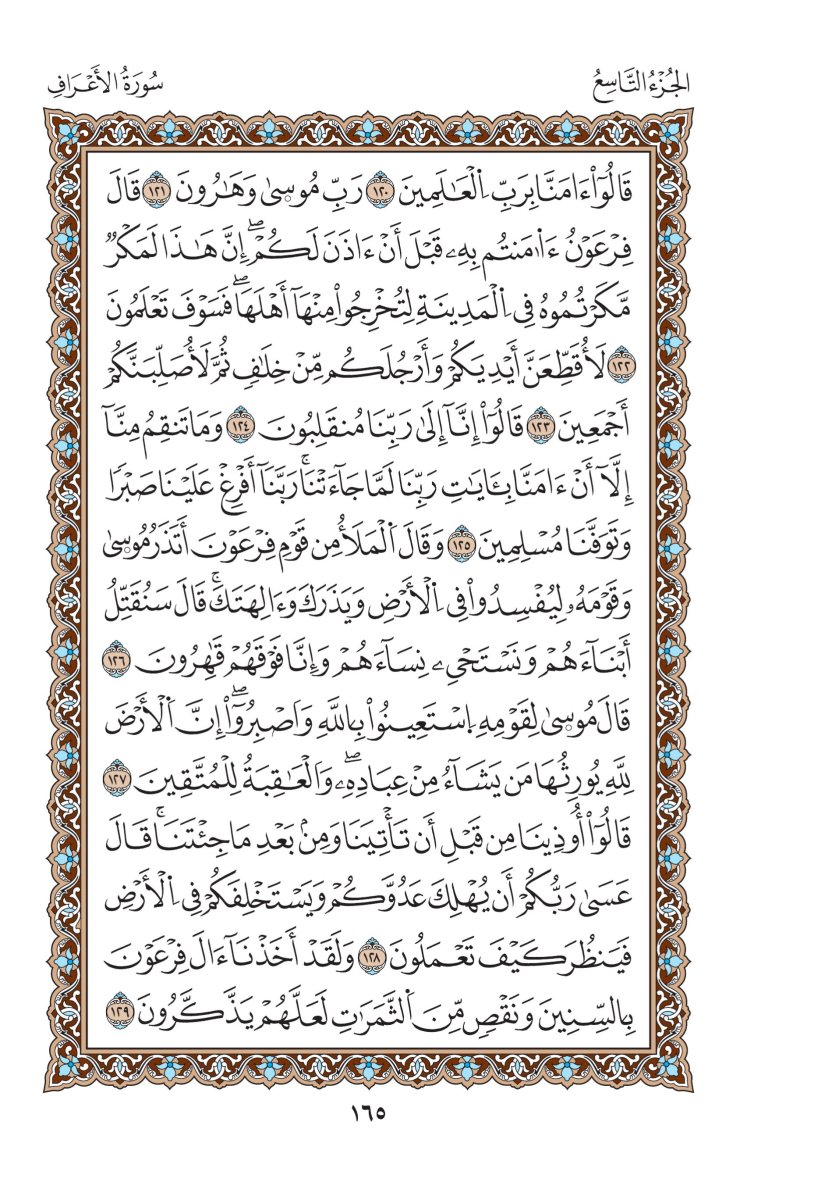 الجُزْءُ التَّاسِعُ
سُورَةُ الأَعْرَافِ
قَالُوٓاْ ءَامَنَّا بِرَبِّ اِ۬لْعَٰلَمِينَ ١٢٠ رَبِّ مُوسِىٰ وَهَٰرُونَ ١٢١ قَالَ
فِرْعَوْنُ ءَا۬مَنتُم بِهِۦ قَبْلَ أَنْ ءَاذَنَ لَكُمْۖ إِنَّ هَٰذَا لَمَكْرٌ
مَّكَرْتُمُوهُ فِي اِ۬لْمَدِينَةِ لِتُخْرِجُواْ مِنْهَآ أَهْلَهَاۖ فَسَوْفَ تَعْلَمُونَ
١٢٢ لَأُقَطِّعَنَّ أَيْدِيَكُمْ وَأَرْجُلَكُم مِّنْ خِلَٰفٍ ثُمَّ لَأُصَلِّبَنَّكُمْ
أَجْمَعِينَ ١٢٣ قَالُوٓاْ إِنَّآ إِلَىٰ رَبِّنَا مُنقَلِبُونَ ١٢٤ وَمَا تَنقِمُ مِنَّآ
إِلَّآ أَنْ ءَامَنَّا بِـَٔايَٰتِ رَبِّنَا لَمَّا جَآءَتْنَاۚ رَبَّنَآ أَفْرِغْ عَلَيْنَا صَبْرٗا
وَتَوَفَّنَا مُسْلِمِينَ ١٢٥ وَقَالَ اَ۬لْمَلَأُ مِن قَوْمِ فِرْعَوْنَ أَتَذَرُ مُوسِىٰ
وَقَوْمَهُۥ لِيُفْسِدُواْ فِي اِ۬لْأَرْضِ وَيَذَرَكَ وَءَالِهَتَكَۚ قَالَ سَنُقَتِّلُ
أَبْنَآءَهُمْ وَنَسْتَحْيِۦ نِسَآءَهُمْ وَإِنَّا فَوْقَهُمْ قَٰهِرُونَ ١٢٦
قَالَ مُوسِىٰ لِقَوْمِهِ اِ۪سْتَعِينُواْ بِاللَّهِ وَاَصْبِرُوٓاْۖ إِنَّ اَ۬لْأَرْضَ
لِلَّهِ يُورِثُهَا مَن يَشَآءُ مِنْ عِبَادِهِۦۖ وَالْعَٰقِبَةُ لِلْمُتَّقِينَ ١٢٧
قَالُوٓاْ أُوذِينَا مِن قَبْلِ أَن تَأْتِيَنَا وَمِنۢ بَعْدِ مَا جِئْتَنَاۚ قَالَ
عَسَىٰ رَبُّكُمْ أَن يُهْلِكَ عَدُوَّكُمْ وَيَسْتَخْلِفَكُمْ فِي اِ۬لْأَرْضِ
فَيَنظُرَ كَيْفَ تَعْمَلُونَ ١٢٨ وَلَقَدْ أَخَذْنَآ ءَالَ فِرْعَوْنَ
بِالسِّنِينَ وَنَقْصٍ مِّنَ اَ۬لثَّمَرَٰتِ لَعَلَّهُمْ يَذَّكَّرُونَ ١٢٩
١٦٥